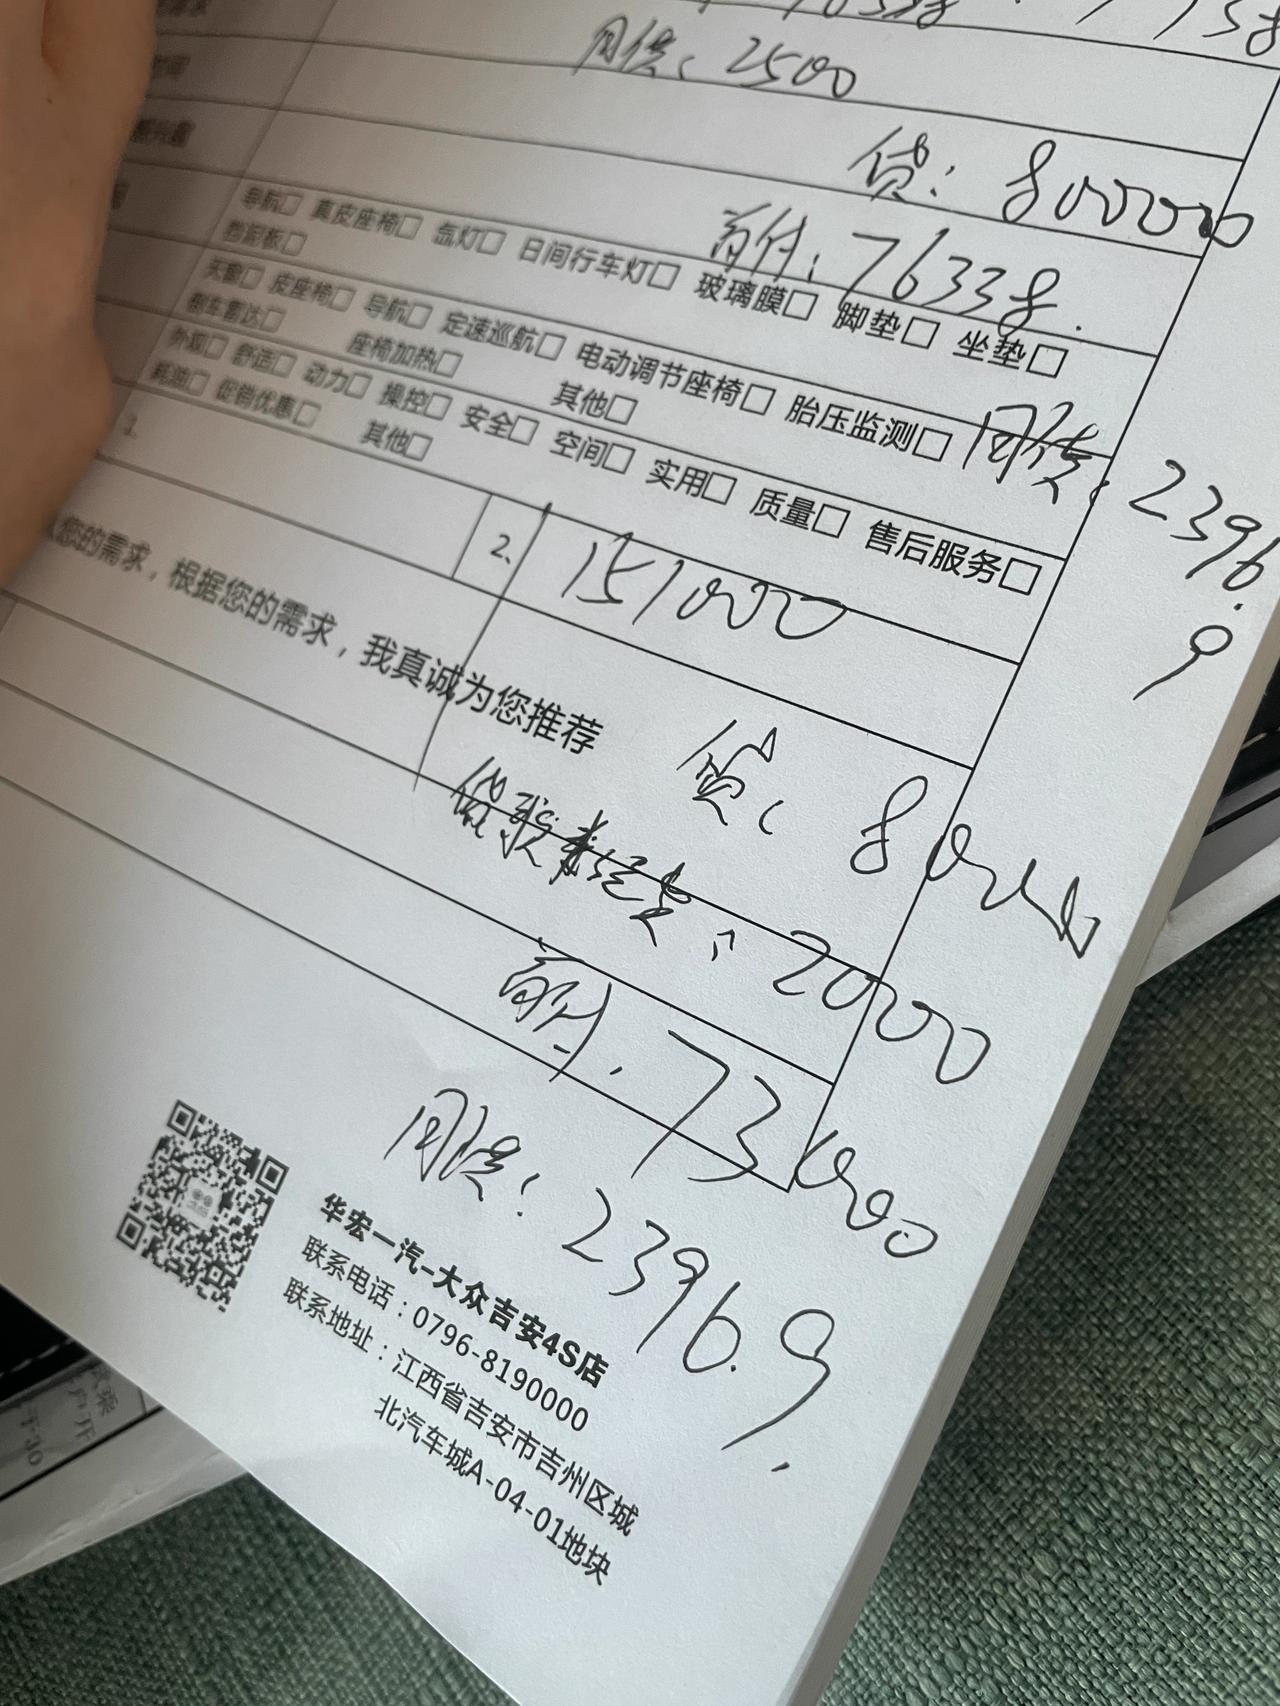 月供：2500
贷：80000
首付：76338.
导航□ 真皮座椅□ 氙灯□ 日间行车灯□ 玻璃膜□ 脚垫□ 坐垫□
挡泥板□
天窗□ 皮座椅□ 导航□ 定速巡航□ 电动调节座椅□ 胎压监测□
倒车雷达□ 座椅加热□ 其他□
月供：2396.9
外观□ 舒适□ 动力□ 操控□ 安全□ 空间□ 实用□ 质量□ 售后服务□
耗油□ 促销优惠□ 其他□
1、
2、 151000
您的需求，根据您的需求，我真诚为您推荐
贷：80000
2000
首付：73000
月供：2396.9
华宏一汽-大众吉安4S店
联系电话：0796-8190000
联系地址：江西省吉安市吉州区城
北汽车城A-04-01地块